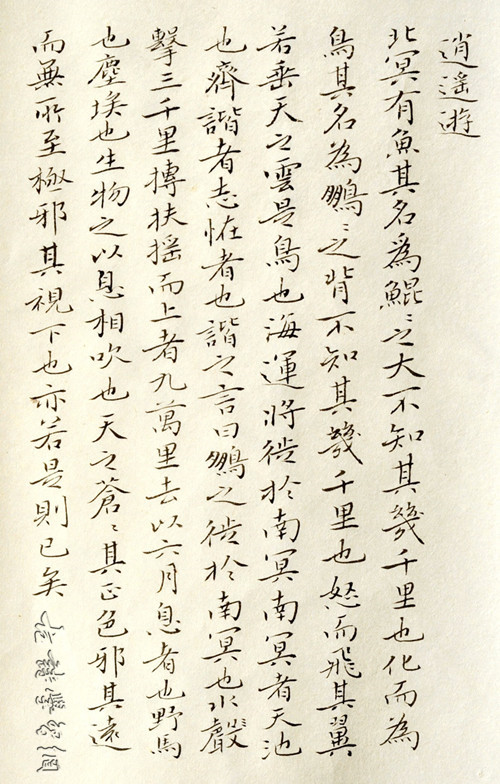 逍遥遊
北冥有魚其名為鯤〻之大不知其幾千里也化而為
鳥其名為鵬〻之背不知其幾千里也怒而飛其翼
若垂天之雲是鳥也海運將徙於南冥南冥者天池
也齊諧者志恠者也諧之言曰鵬之徙於南冥也水擊
三千里搏扶摇而上者九萬里去以六月息者也野馬
也塵埃也生物之以息相吹也天之蒼〻其正色邪其遠
而無所至極邪其視下也亦若是則已矣